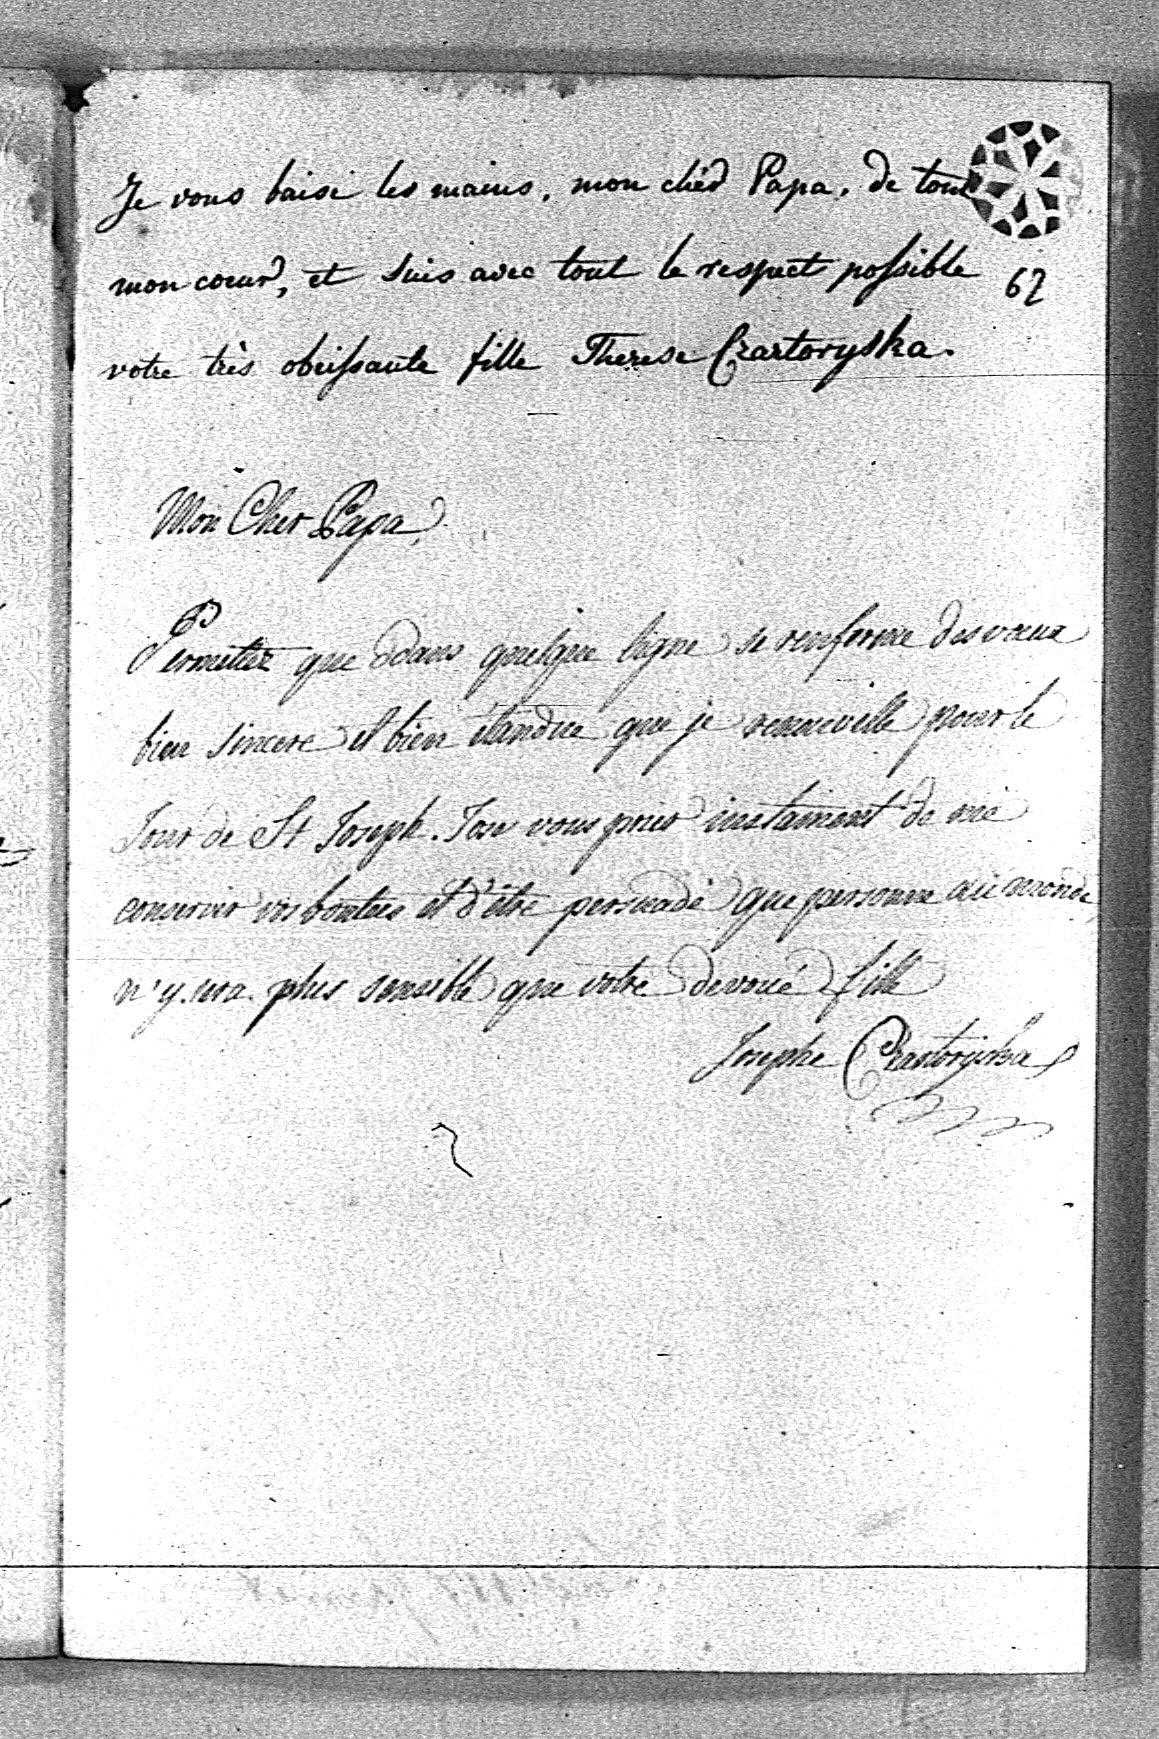 Je vous baise les mains, mon cher Papa, de tout
mon coeur, et suis avec tout le respect possible
62
votre très obeissante fille Therese Czartoryska.
Mon Cher Papa,
Permettez que dans quelque ligne se renferme des vœux
bien sincere et bien étandue que je renouvelle pour le
Jour de St Joseph. J'ose vous prier instament de me
conserver vos bontées et d'être persuadé que personne au monde,
n'y sera plus sensible que votre devoué fille
Josephe Czartoryska